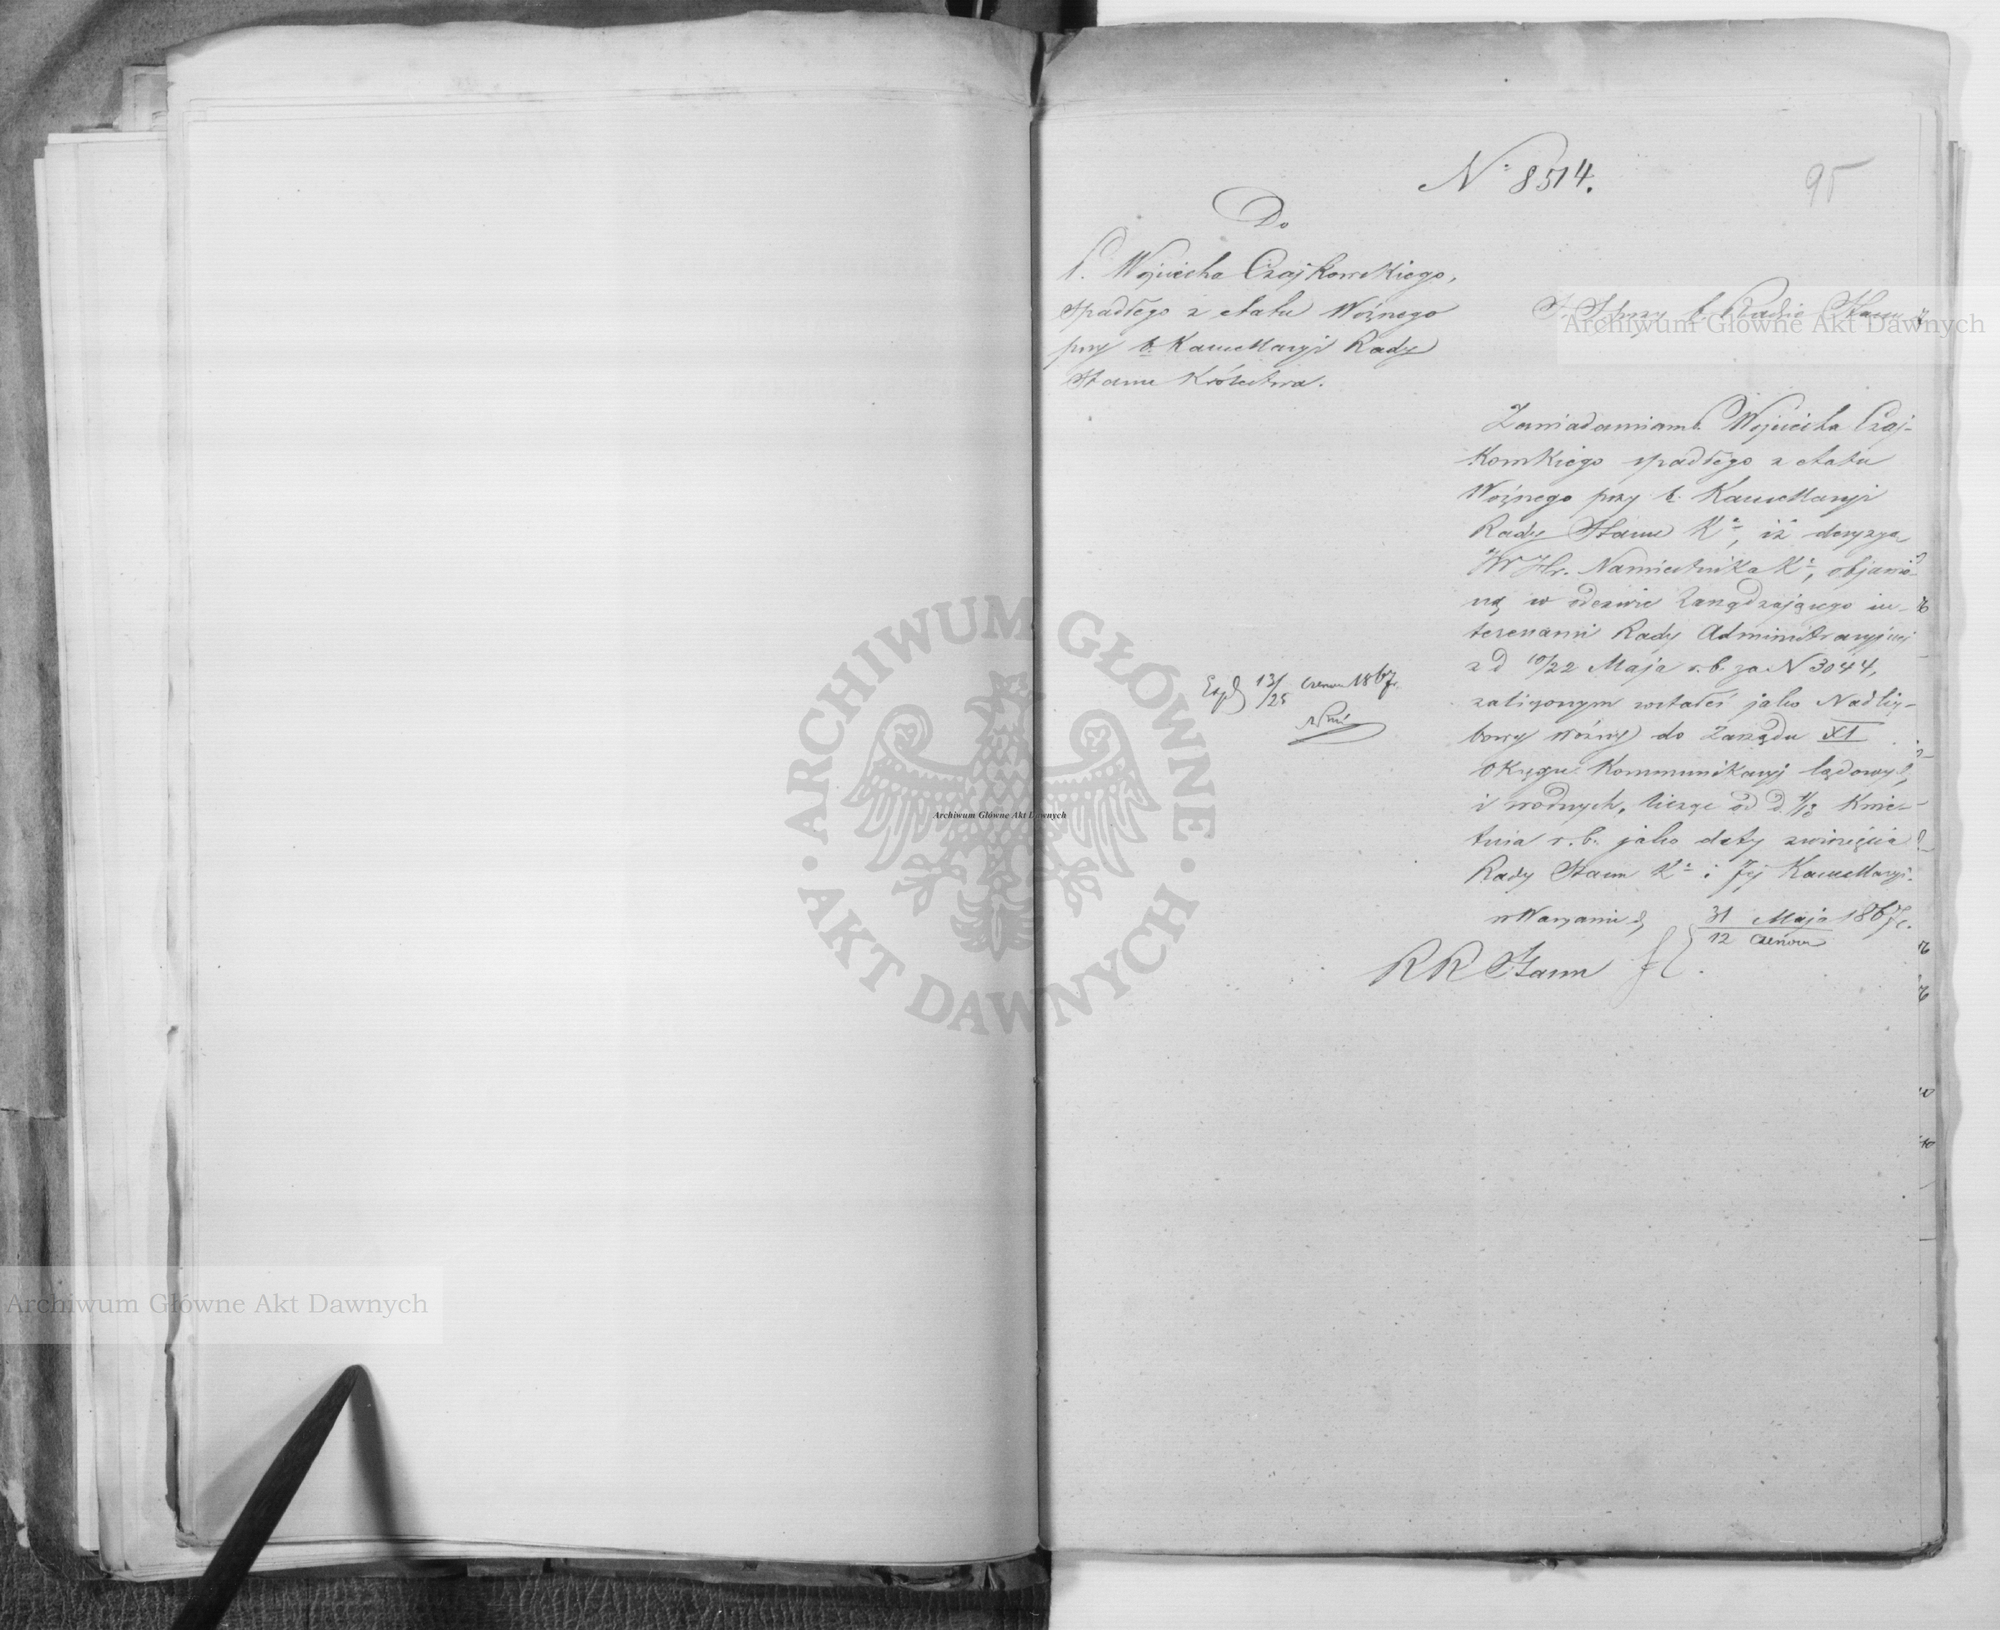 № 8514.
95
Do
P. Wojciecha Czajkowskiego,
spadłego z etatu Woźnego
przy b. Kancellaryi Rady
Stanu Królestwa.
S. S. przy b. Radzie Stanu
Zawiadamiam P. Wojciecha Czaj-
kowskiego spadłego z etatu
Woźnego przy b. Kancellaryi
Rady Stanu Kа, iż decyzyą
JW Hr. Namiestnika Kа, objawio-
ną w odezwie Zarządzającego in-
teresami Rady Administracyjnej
z d 10/22 Maja r. b. za N 3044,
zaliczonym został jako Nadlicz-
bowy Woźny do Zarządu XI
Okręgu Kommunikacyj lądowych,
i wodnych, licząc od d 1/13 Kwie-
tnia r. b. jako daty zwinięcia
Rady Stanu Kа i Jej Kancellaryi.
w Warszawie d 31 Maja / 12 Czerwca 1867 r.
RR Stanu
Exp d 13/25 Czerwca 1867 r.
Archiwum Główne Akt Dawnych
Archiwum Główne Akt Dawnych
Archiwum Główne Akt Dawnych
ARCHIWUM GŁÓWNE · AKT DAWNYCH ·